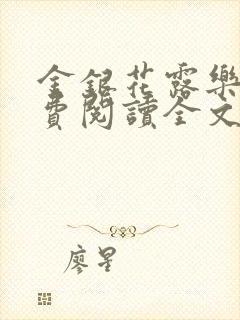 金銀花露樂
費閱讀全文
廖星